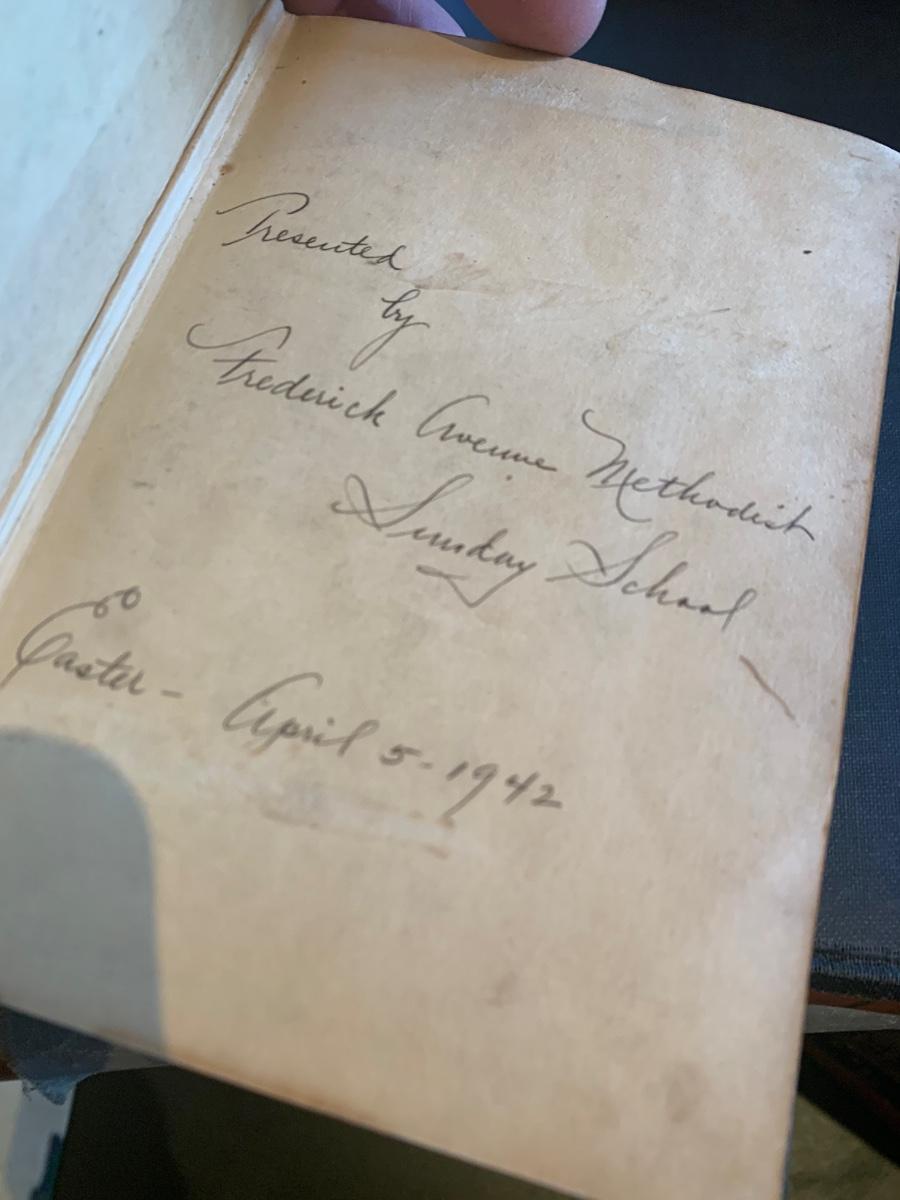 Presented
by
Frederick Avenue Methodist
Sunday School
Easter - April 5 - 1942